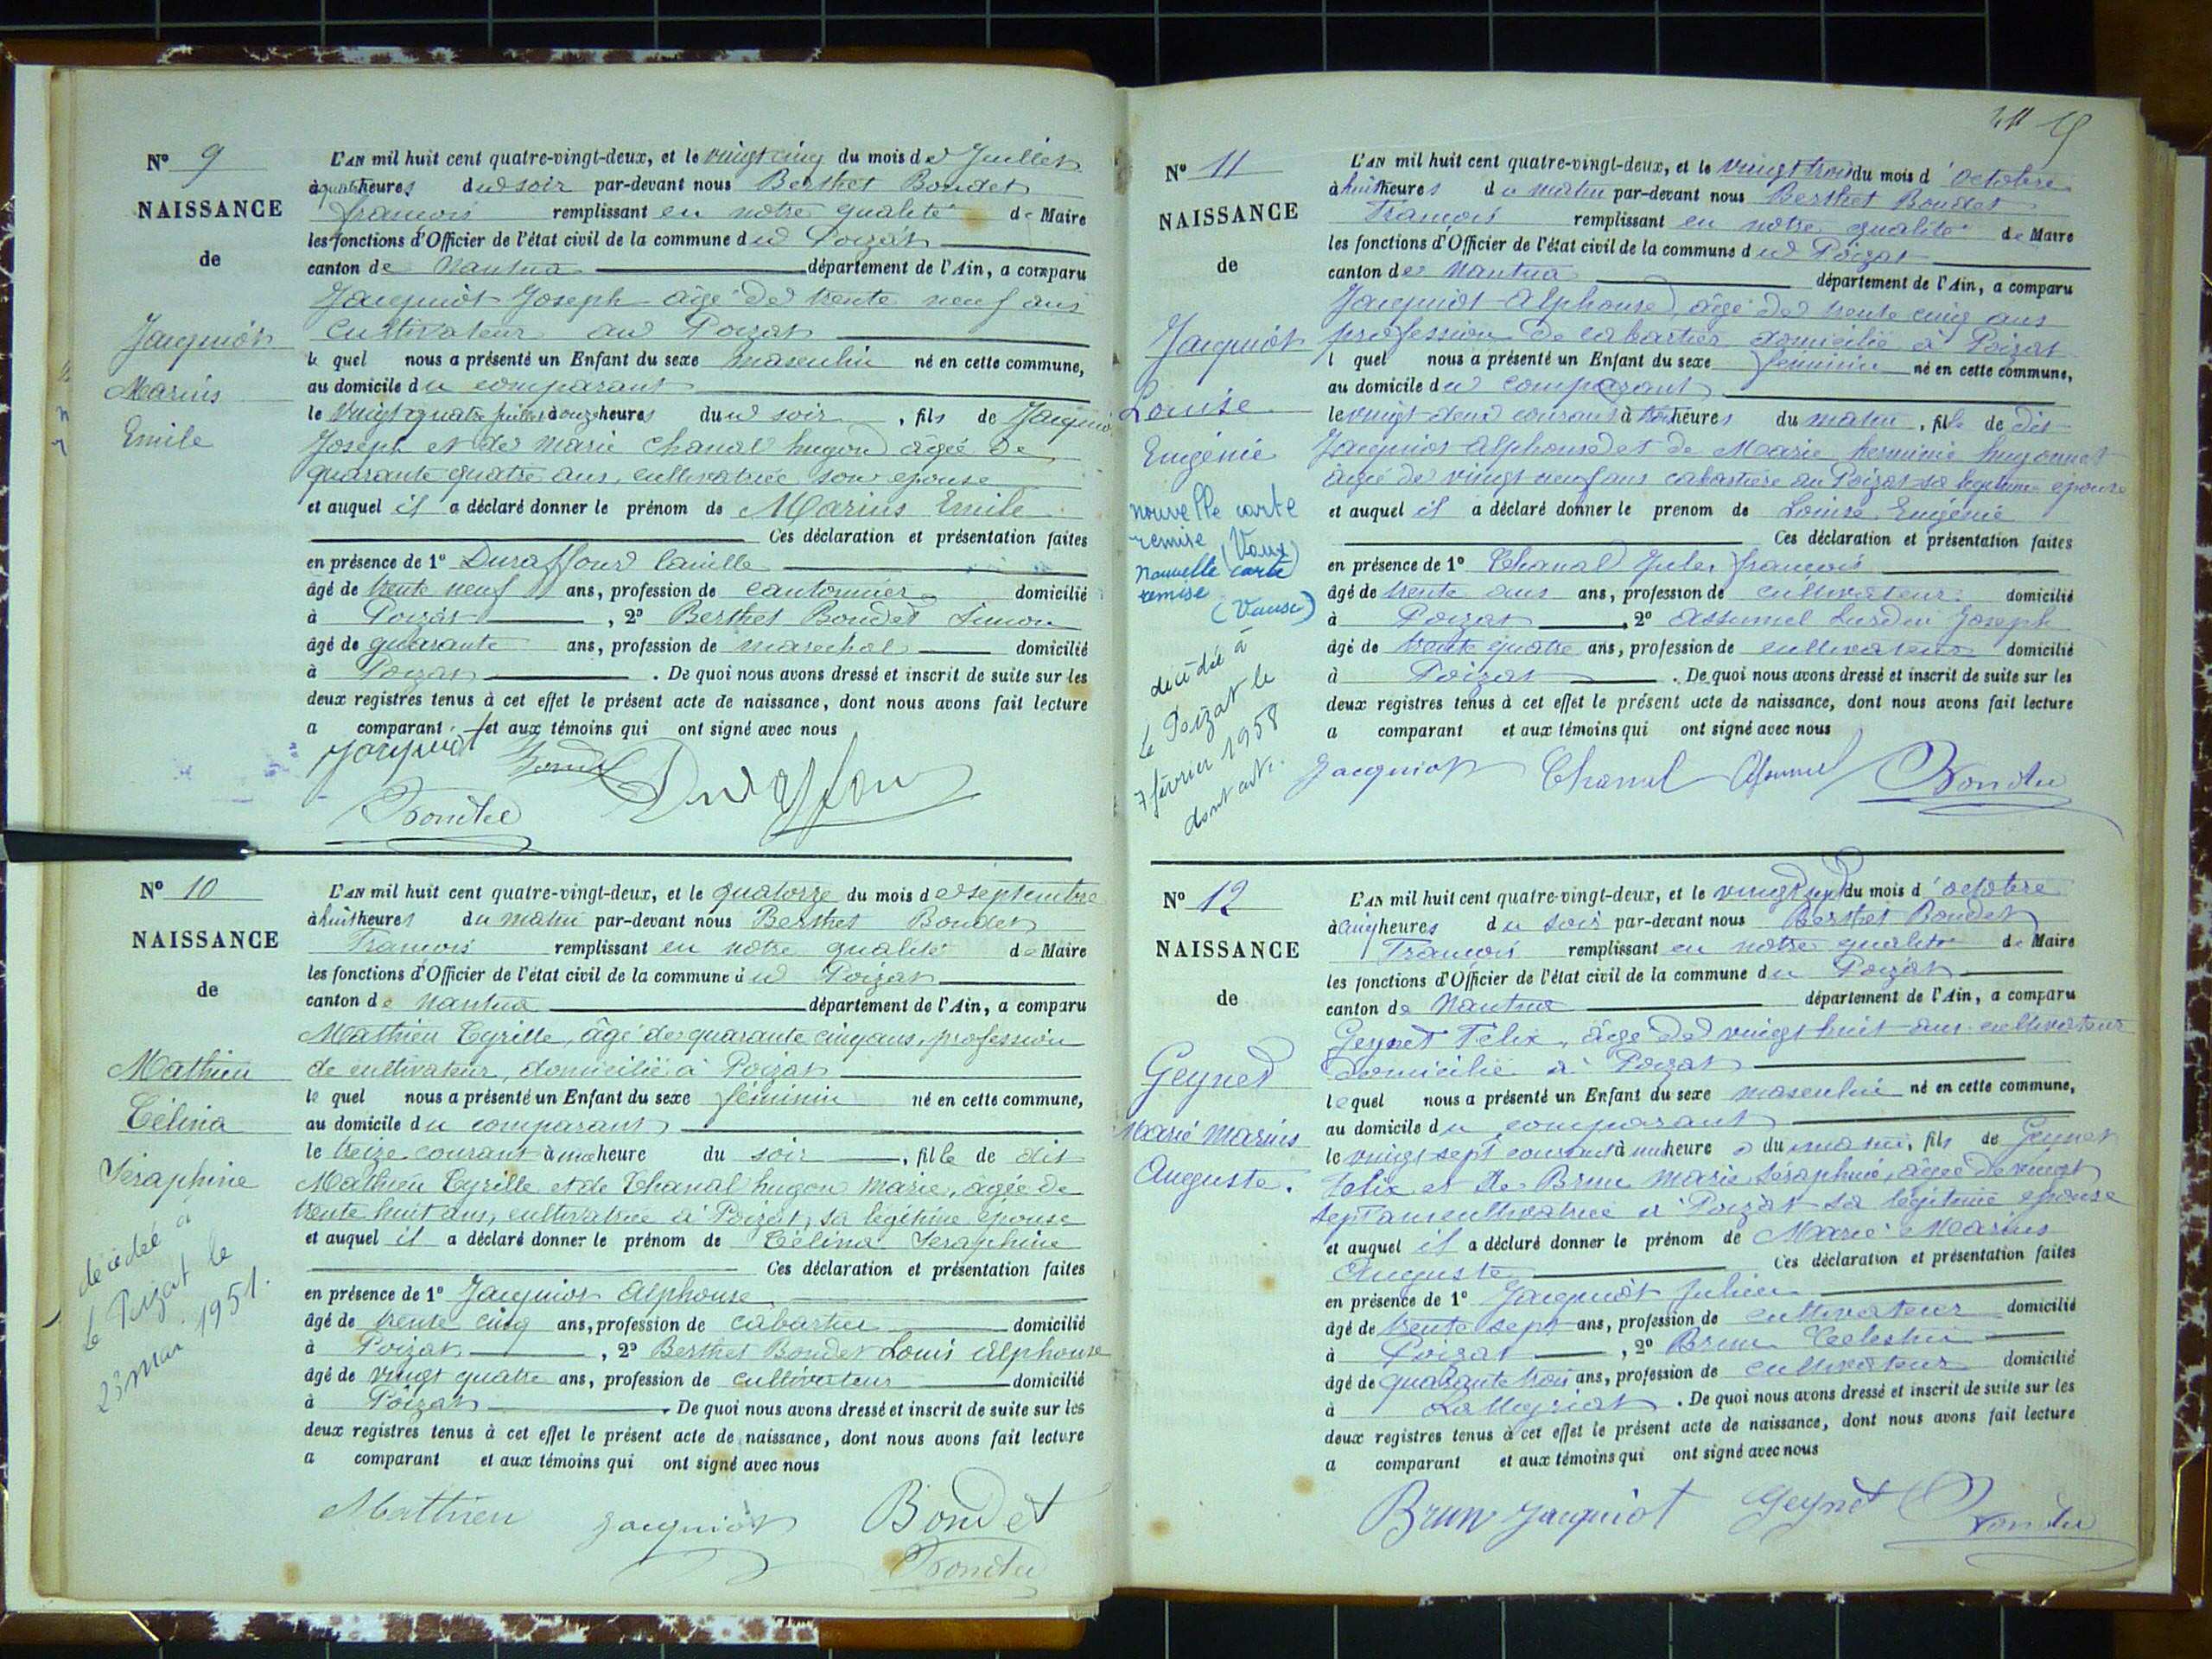 N° 9
NAISSANCE
de
Jacquiot
Marius
Emile
L'AN mil huit cent quatre-vingt-deux, et le vingt cinq du mois de Juillet
à quatre heures du soir par-devant nous Berthet Bondet
françois remplissant en notre qualité de Maire
les fonctions d'Officier de l'état civil de la commune du Poizat
canton de Nantua département de l'Ain, a comparu
Jacquiot Joseph âgé de trente neuf ans
cultivateur au Poizat
le quel nous a présenté un Enfant du sexe masculin né en cette commune,
au domicile du comparant
le vingt quatre juillet à onze heures du soir, fils de Jacquiot
Joseph et de marie chanal hugon âgée de
quarante quatre ans, cultivatrice son epouse
et auquel il a déclaré donner le prénom de Marius Emile
Ces déclaration et présentation faites
en présence de 1° Duraffourd Camille
âgé de trente neuf ans, profession de cantonnier domicilié
à Poizat, 2° Berthet Bondet Simon
âgé de quarante ans, profession de marechal domicilié
à Poizat. De quoi nous avons dressé et inscrit de suite sur les
deux registres tenus à cet effet le présent acte de naissance, dont nous avons fait lecture
a comparant et aux témoins qui ont signé avec nous
Jacquiot Bondet Duraffour
Bondet
N° 10
NAISSANCE
de
Mathieu
Célina
Séraphine
décédée à
le Poizat le
23 mai 1951.
L'AN mil huit cent quatre-vingt-deux, et le quatorze du mois de septembre
à huit heures du matin par-devant nous Berthet Bondet
François remplissant en notre qualité de Maire
les fonctions d'Officier de l'état civil de la commune du Poizat
canton de Nantua département de l'Ain, a comparu
Mathieu Cyrille, âgé de quarante cinq ans, profession
de cultivateur, domicilié à Poizat
le quel nous a présenté un Enfant du sexe féminin né en cette commune,
au domicile du comparant
le treize courant à une heure du soir, fille de dit
Mathieu Cyrille et de Chanal hugon Marie, âgée de
trente huit ans, cultivatrice à Poizat, sa légitime épouse
et auquel il a déclaré donner le prénom de Célina Séraphine
Ces déclaration et présentation faites
en présence de 1° Jacquiot Alphonse
âgé de trente cinq ans, profession de cabartier domicilié
à Poizat, 2° Berthet Bondet Louis Alphonse
âgé de vingt quatre ans, profession de cultivateur domicilié
à Poizat. De quoi nous avons dressé et inscrit de suite sur les
deux registres tenus à cet effet le présent acte de naissance, dont nous avons fait lecture
a comparant et aux témoins qui ont signé avec nous
Matthieu Jacquiot Bondet
Bondet
N° 11
NAISSANCE
de
Jacquiot
Louise
Eugénie
nouvelle carte
remise (Vaux)
nouvelle carte
remise
décédée à
le Poizat le
7 février 1958
dont acte.
L'AN mil huit cent quatre-vingt-deux, et le vingt trois du mois d'octobre
à huit heures du matin par-devant nous Berthet Bondet
François remplissant en notre qualité de Maire
les fonctions d'Officier de l'état civil de la commune du Poizat
canton de Nantua département de l'Ain, a comparu
Jacquiot Alphonse, âgé de trente cinq ans
profession de cabartier domicilié à Poizat
l quel nous a présenté un Enfant du sexe féminin né en cette commune,
au domicile du comparant
le vingt-deux courant à trois heures du matin, fille de dit
Jacquiot Alphonse et de Marie herminie hugonnet
âgée de vingt neuf ans cabartière au Poizat sa legitime epouse
et auquel il a déclaré donner le prenom de Louise Eugénie
Ces déclaration et présentation faites
en présence de 1° Chanal Jules françois
âgé de trente ans ans, profession de cultivateur domicilié
à Poizat, 2° Assumel Lurdin Joseph
âgé de trente quatre ans, profession de cultivateur domicilié
à Poizat. De quoi nous avons dressé et inscrit de suite sur les
deux registres tenus à cet effet le présent acte de naissance, dont nous avons fait lecture
a comparant et aux témoins qui ont signé avec nous
Jacquiot Chanal Assumel Bondet
N° 12
NAISSANCE
de
Geynet
Marie Marius
Auguste.
L'AN mil huit cent quatre-vingt-deux, et le vingt sept du mois d'octobre
à cinq heures du soir par-devant nous Berthet Bondet
François remplissant en notre qualité de Maire
les fonctions d'Officier de l'état civil de la commune du Poizat
canton de Nantua département de l'Ain, a comparu
Geynet Félix, âgé de vingt huit ans cultivateur
domicilié à Poizat
lequel nous a présenté un Enfant du sexe masculin né en cette commune,
au domicile du comparant
le vingt sept courant à une heure du matin, fils de Geynet
Félix et de Brun Marie Séraphine, âgée de vingt
sept ans cultivatrice à Poizat sa légitime epouse
et auquel il a déclaré donner le prénom de Marie Marius
Auguste Ces déclaration et présentation faites
en présence de 1° Jacquiot Julien
âgé de trente sept ans, profession de cultivateur domicilié
à Poizat, 2° Brun Celestin
âgé de quarante trois ans, profession de cultivateur domicilié
à Lalleyriat. De quoi nous avons dressé et inscrit de suite sur les
deux registres tenus à cet effet le présent acte de naissance, dont nous avons fait lecture
a comparant et aux témoins qui ont signé avec nous
Brun Jacquiot Geynet Bondet